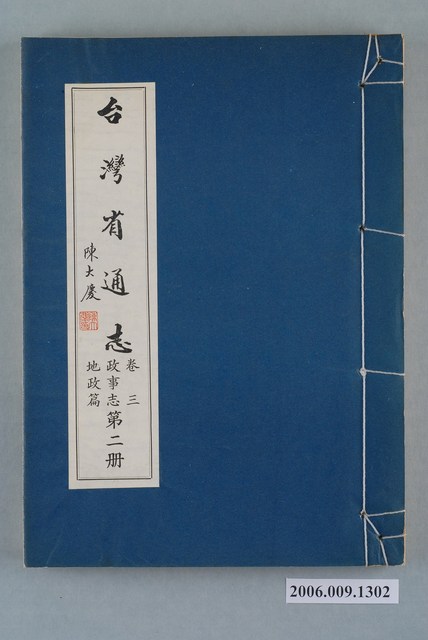 台灣省通志
陳大慶
卷三
政事志
地政篇
第二册
2006.009.1302